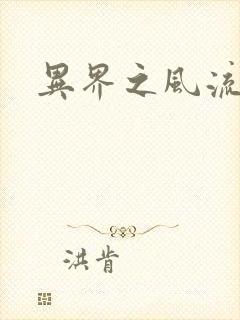 異界之風流
洪肯